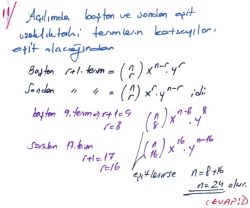 Açılımda baştan ve sondan eşit
uzaklıktaki terimlerin katsayıları
eşit olacağından
Baştan r+1. terim = (n r) x^n-r . y^r
Sondan " " = (n r) x^r . y^n-r idi
baştan 9. terim → r+1=9
r=8
(n 8) x^n-8 . y^8
sondan 17. terim
r+1=17
r=16
(n 16) x^16 . y^n-16
eşitlenirse n=8+16
n=24 olur.
(CEVAP: D)